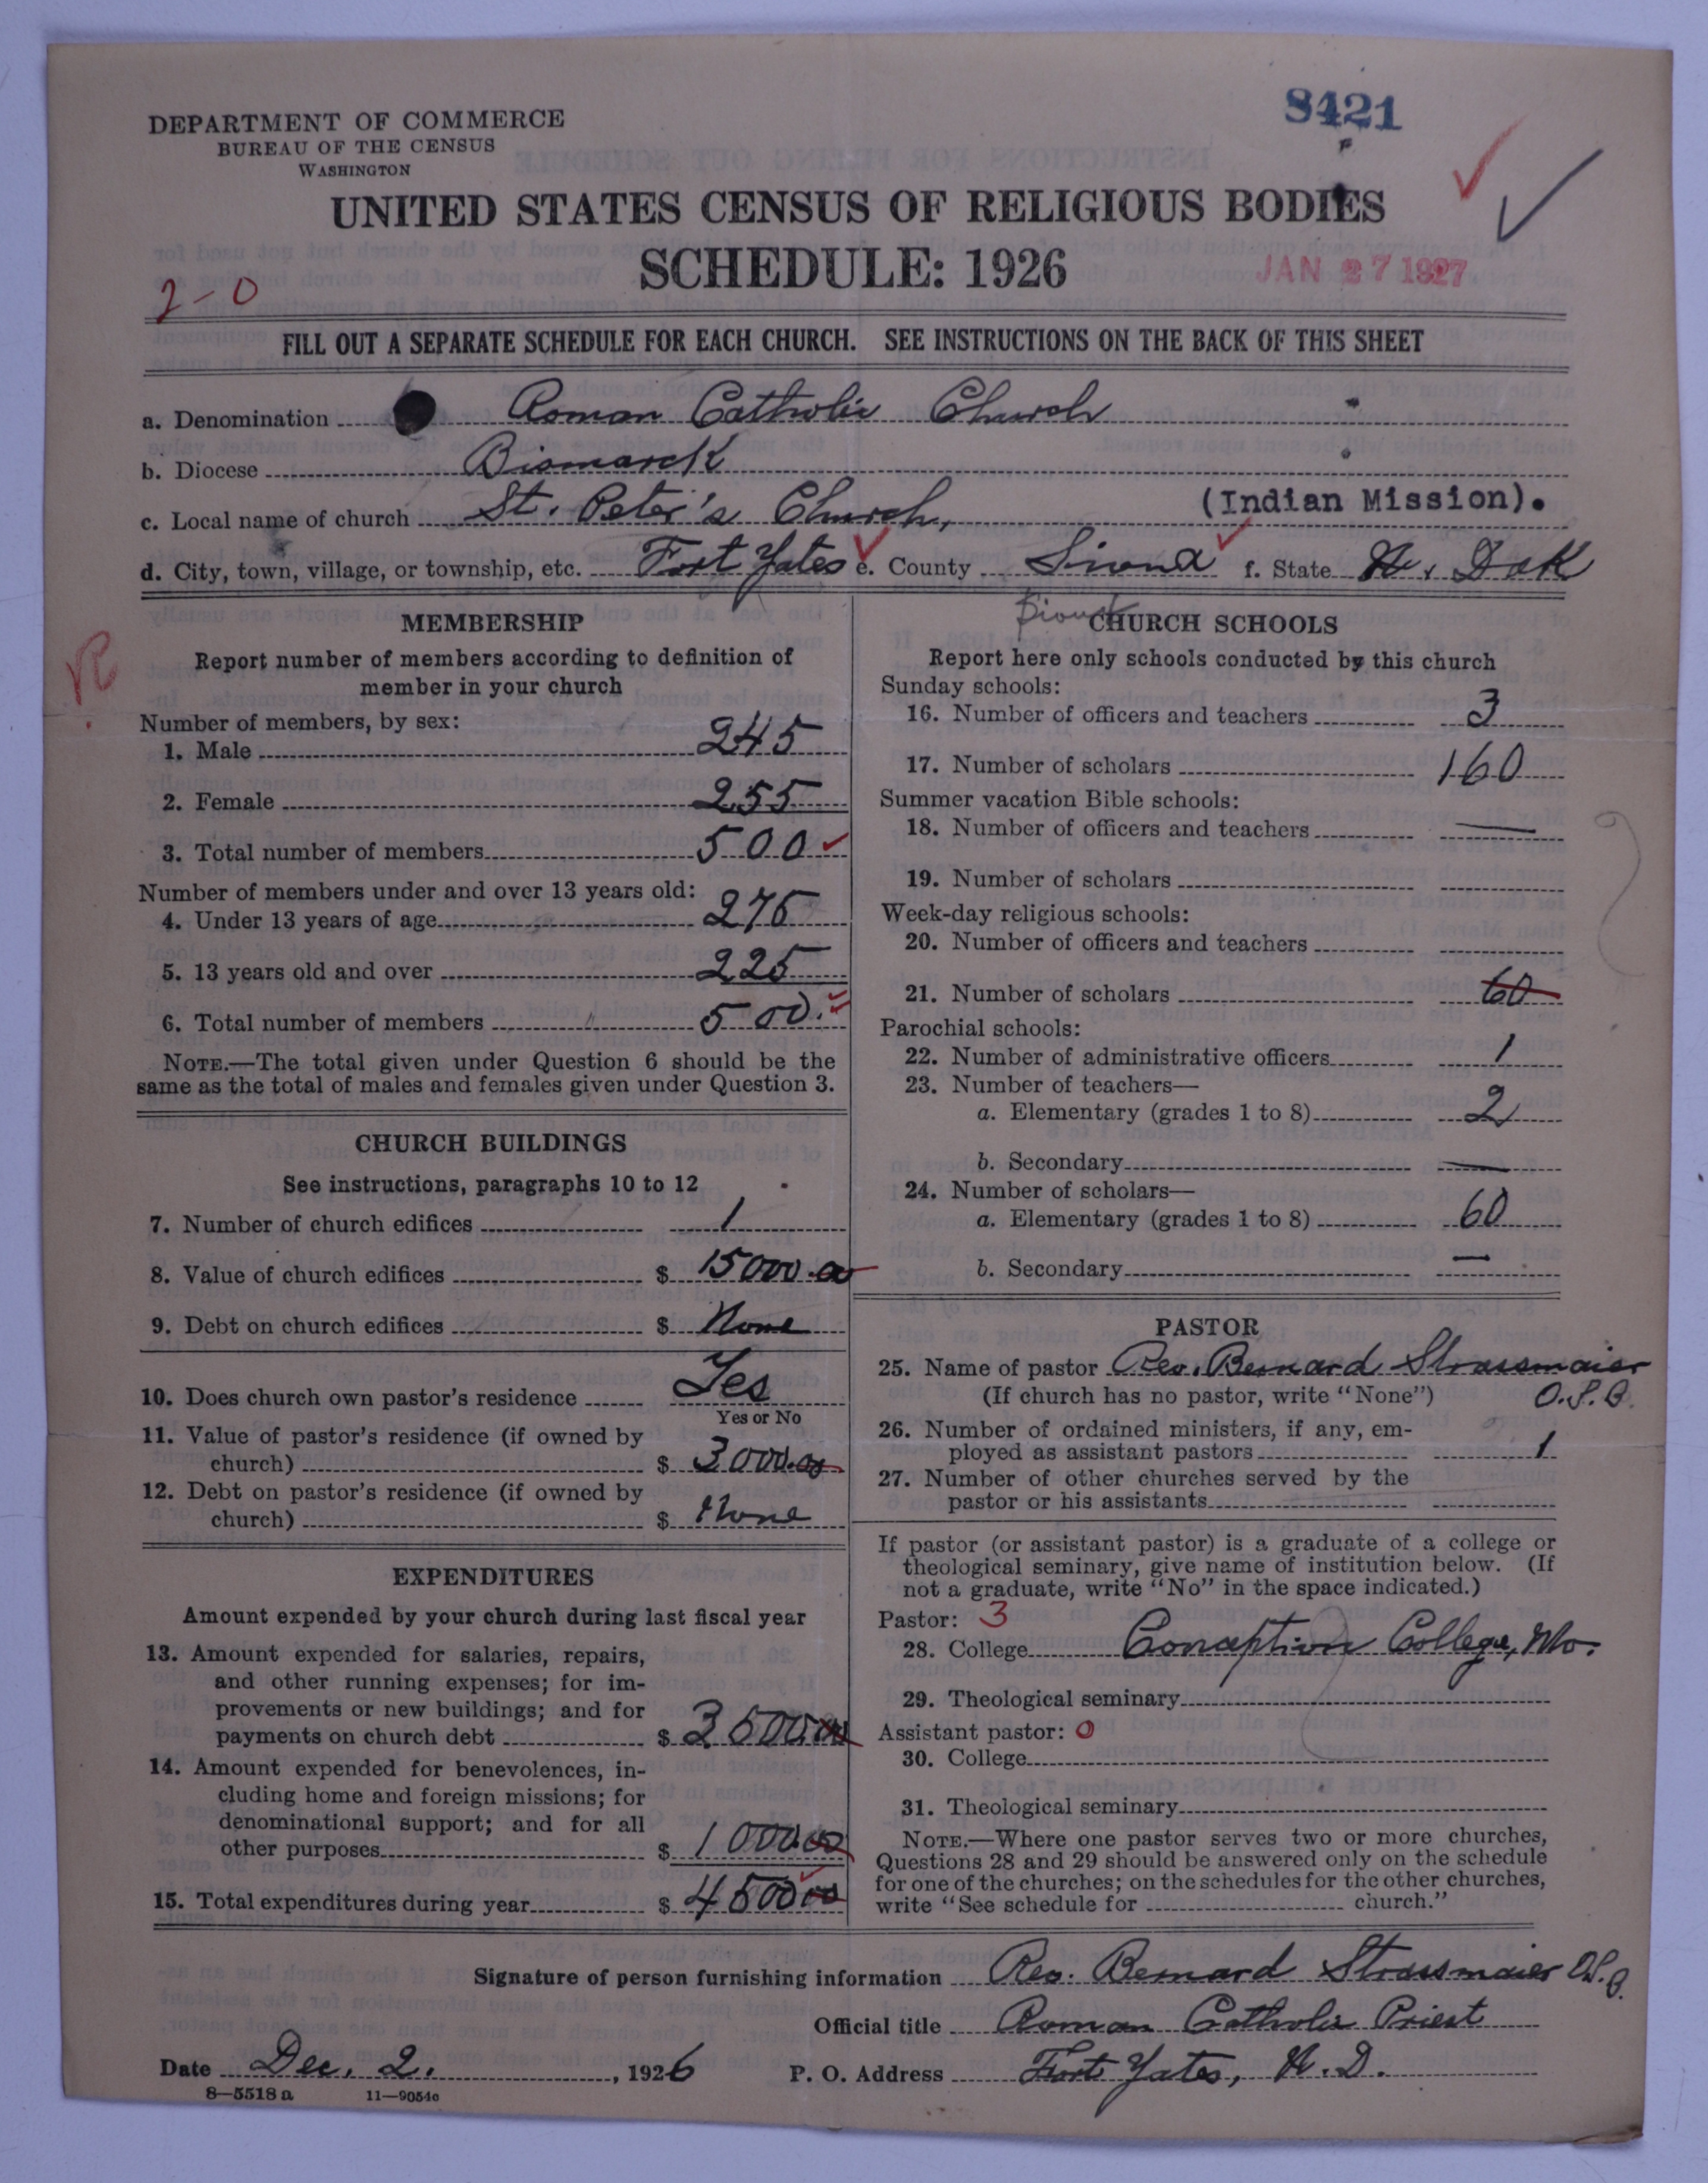 8421
DEPARTMENT OF COMMERCE
BUREAU OF THE CENSUS
WASHINGTON
UNITED STATES CENSUS OF RELIGIOUS BODIES
SCHEDULE: 1926
JAN 27 1927
2-0
FILL OUT A SEPARATE SCHEDULE FOR EACH CHURCH. SEE INSTRUCTIONS ON THE BACK OF THIS SHEET
a. Denomination Roman Catholic Church
b. Diocese Bismarck
c. Local name of church St. Peter's Church, (Indian Mission).
d. City, town, village, or township, etc. Fort Yates e. County f. State N. Dak
MEMBERSHIP
Report number of members according to definition of
member in your church
Number of members, by sex:
1. Male 245
2. Female 255
3. Total number of members 500
Number of members under and over 13 years old:
4. Under 13 years of age 275
5. 13 years old and over 225
6. Total number of members 500.
NOTE.—The total given under Question 6 should be the
same as the total of males and females given under Question 3.
CHURCH BUILDINGS
See instructions, paragraphs 10 to 12
7. Number of church edifices 1
8. Value of church edifices $ 15000.00
9. Debt on church edifices $ None
10. Does church own pastor's residence Yes
Yes or No
11. Value of pastor's residence (if owned by
church) $ 3000.00
12. Debt on pastor's residence (if owned by
church) $ None
EXPENDITURES
Amount expended by your church during last fiscal year
13. Amount expended for salaries, repairs,
and other running expenses; for im-
provements or new buildings; and for
payments on church debt $ 3500.00
14. Amount expended for benevolences, in-
cluding home and foreign missions; for
denominational support; and for all
other purposes $ 1000.00
15. Total expenditures during year $ 4500.00
Sioux
CHURCH SCHOOLS
Report here only schools conducted by this church
Sunday schools:
16. Number of officers and teachers 3
17. Number of scholars 160
Summer vacation Bible schools:
18. Number of officers and teachers —
19. Number of scholars
Week-day religious schools:
20. Number of officers and teachers
21. Number of scholars 60
Parochial schools:
22. Number of administrative officers 1
23. Number of teachers—
a. Elementary (grades 1 to 8) 2
b. Secondary —
24. Number of scholars—
a. Elementary (grades 1 to 8) 60
b. Secondary —
PASTOR
25. Name of pastor Rev. Bernard Strassmaier
(If church has no pastor, write "None") O.S.B.
26. Number of ordained ministers, if any, em-
ployed as assistant pastors 1
27. Number of other churches served by the
pastor or his assistants
If pastor (or assistant pastor) is a graduate of a college or
theological seminary, give name of institution below. (If
not a graduate, write "No" in the space indicated.)
Pastor: 3
28. College Conception College, Mo.
29. Theological seminary
Assistant pastor: 0
30. College
31. Theological seminary
NOTE.—Where one pastor serves two or more churches,
Questions 28 and 29 should be answered only on the schedule
for one of the churches; on the schedules for the other churches,
write "See schedule for church."
Signature of person furnishing information Rev. Bernard Strassmaier O.S.B.
Official title Roman Catholic Priest
Date Dec. 2. , 1926 P. O. Address Fort Yates, N.D.
8—5518 a 11—9054c